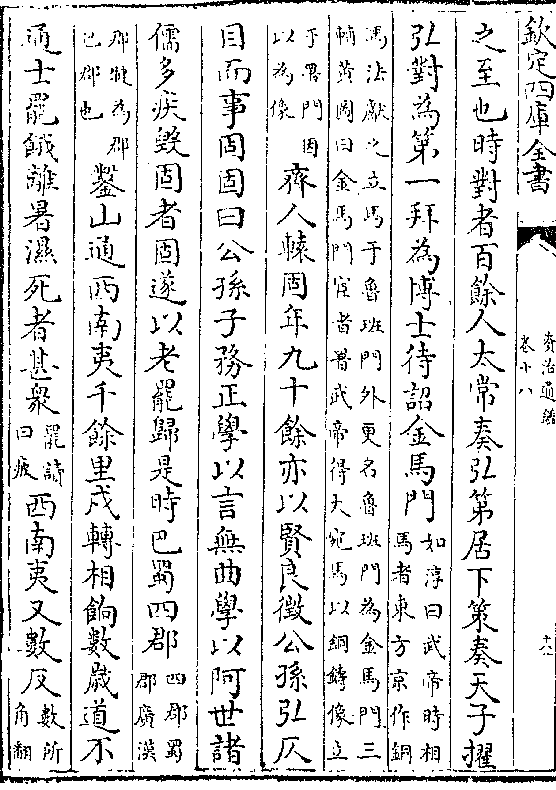 欽定四庫全書
資治通鑑
卷十八
之至也時對者百餘人太常奏弘第居下策奏天子擢
弘對為第一拜為博士待詔金馬門如淳曰武帝時相馬者東方京作銅
馬法獻之立馬于魯班門外更名魯班門為金馬門三輔黃圖曰金馬門宦者署武帝得大宛馬以銅鑄像立
于署門因以為像齊人轅固年九十餘亦以賢良徵公孫弘仄
目而事固固曰公孫子務正學以言無曲學以阿世諸
儒多疾毀固者固遂以老罷歸是時巴蜀四郡四郡蜀郡廣漢
郡犍為郡巴郡也鑿山通西南夷千餘里戍轉相餉數歲道不
通士罷餓離暑濕死者甚衆罷讀曰疲西南夷又數反數所角翻